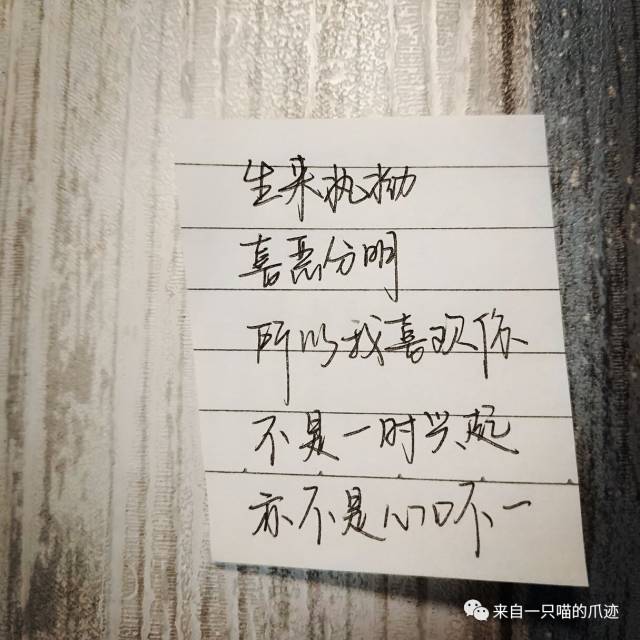 生来执拗
喜恶分明
所以我喜欢你
不是一时兴起
亦不是心口不一
来自一只喵的爪迹